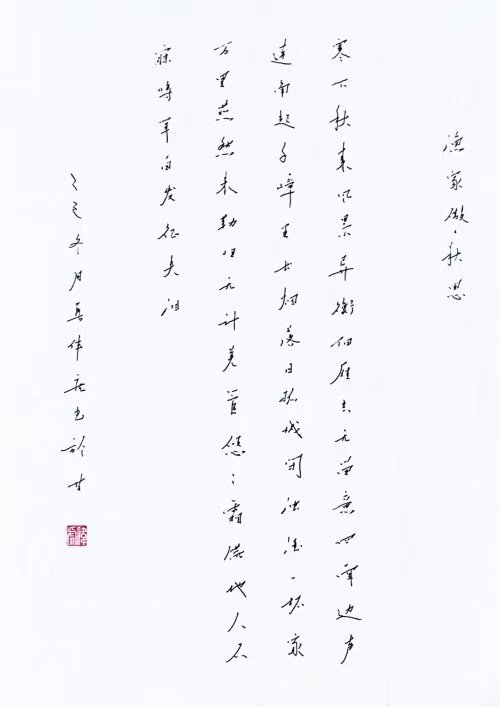 渔家傲·秋思
塞下秋来风景异衡阳雁去无留意四面边声
连角起千嶂里长烟落日孤城闭浊酒一杯家
万里燕然未勒归无计羌管悠悠霜满地人不
寐将军白发征夫泪
乙巳冬月伟书於甘